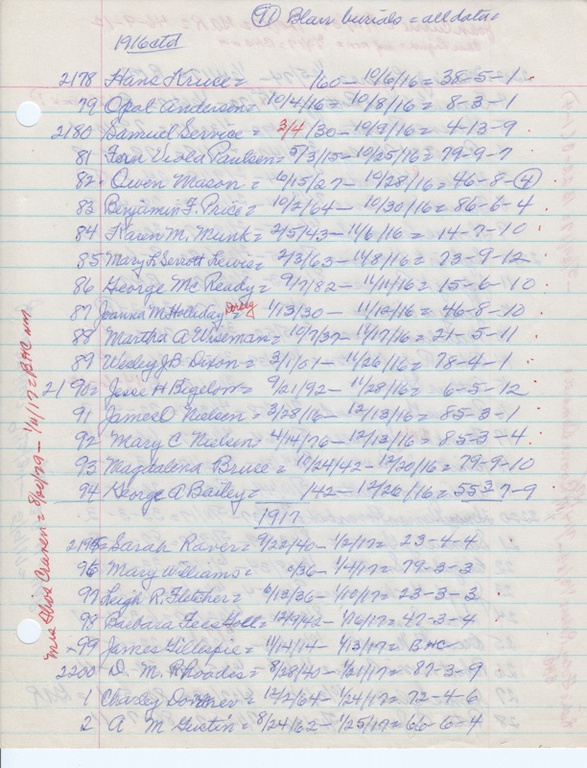 91 Blair burials = all data =
1916 ctd
2178 Hans Kruse = /60 - 10/6/16 = 38-5-1
79 Opal Anderson = 10/4/16 = 10/8/16 = 8-3-1
2180 Samuel Service = 3/4/30 - 10/9/16 = 4-13-9
81 Fern Viola Paulsen = 5/3/15 - 10/25/16 = 79-9-7
82 = Owen Mason = 6/15/27 - 10/28/16 = 46-8-4
83 Benjamin F. Price = 10/2/64 - 10/30/16 = 86-6-4
84 Karen M. Munk = 2/5/43 - 11/6/16 = 14-7-10
85 Mary L. Serrott Lewis = 2/3/63 - 11/8/16 = 73-9-12
86 George McReady = 9/7/82 - 11/11/16 = 15-6-10
87 Joanna M. Holliday = 1/13/30 - 11/12/16 = 46-8-10
88 Martha A Wiseman = 10/7/37 - 11/17/16 = 21-5-11
89 Wesley J.B. Dixon = 3/1/01 - 11/26/16 = 78-4-1
2190 = Jesse H Bigelow = 9/21/92 - 11/28/16 = 6-5-12
91 James O Nielsen = 3/28/16 - 12/13/16 = 85-3-1
92 Mary C Nielsen = 4/14/76 - 12/13/16 = 85-3-4
93 Magdalena Bruse = 10/24/42 - 12/20/16 = 79-9-10
94 George A Bailey = /42 - 12/26/16 = 55 3 7-9
1917
2195 = Sarah Raver = 9/22/40 - 1/2/17 = 23-4-4
96 Mary Williams = /36 - 1/4/17 = 79-3-3
97 Leigh R. Fletcher = 6/13/36 - 1/10/17 = 23-3-3
98 Barbara Holl = 12/9/42 - 1/16/17 = 47-3-4
x 99 James Gillespie = 11/14/14 - 1/13/17 = BHC
2200 = D. M. Rhoades = 8/28/40 - 1/21/17 = 87-3-9
1 Charley = 12/2/64 - 1/24/17 = 72-4-6
2 A M Gustin = 8/24/62 - 1/25/17 = 66-6-4
Mrs Olive Craven = 8/20/79 - 1/11/17 = BHC